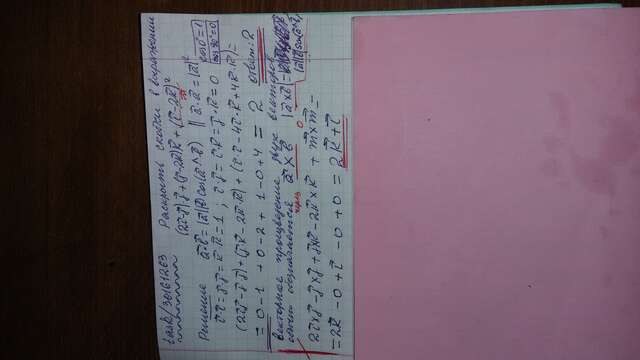 task/30161263 Раскрыть скобки в выражении
(2i-j)·j+(j-2k)k+(i-2k)²
Решение a·b=|a||b|cos(a^b) || a·a=|a|² cos0°=1
i·i=j·j=k·k=1; i·j=i·k=j·k=0 cos90°=0
(2i·j-j·j)+(j·k-2k·k)+(i·i-4i·k+4k·k)=
=0-1+0-2+1-0+4=2 ответ: 2
Векторное произведение двух векторов
обычно обозначается через a×b |a×b|=
|a||b|sin(a^b)
2i×j-j×j+j×k-2k×k+m×m=
=2k-0+i-0+0=2k+i